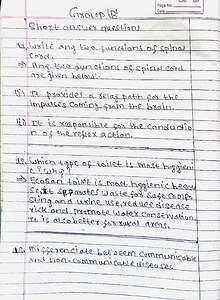 Group 'B'
Short answer question
11. Write any two functions of spinal
cord.
⇒ Any two functions of spinal cord
are given below:
i) It provides a relay path for the
impulses coming from the brain.
ii) It is responsible for the conductio
n of the reflex action.
12. Which type of toilet is most hygieni
c? Why?
⇒ Ecosan toilet is most hygienic becau
se, it separates waste for safe compo
sting and urine use, reduce disease
risk and promote water conservation.
It is also better for rural areas.
Differenciate between communicable
and non-communicable diseases